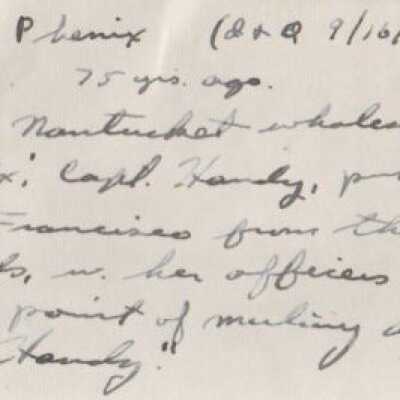 Phenix (I & Q 9/16/
75 yrs. ago.
Nantucket whales
x', Capt. Handy, p
Francisco from th
ds, w. her officers
point of mutiny a
Handy."